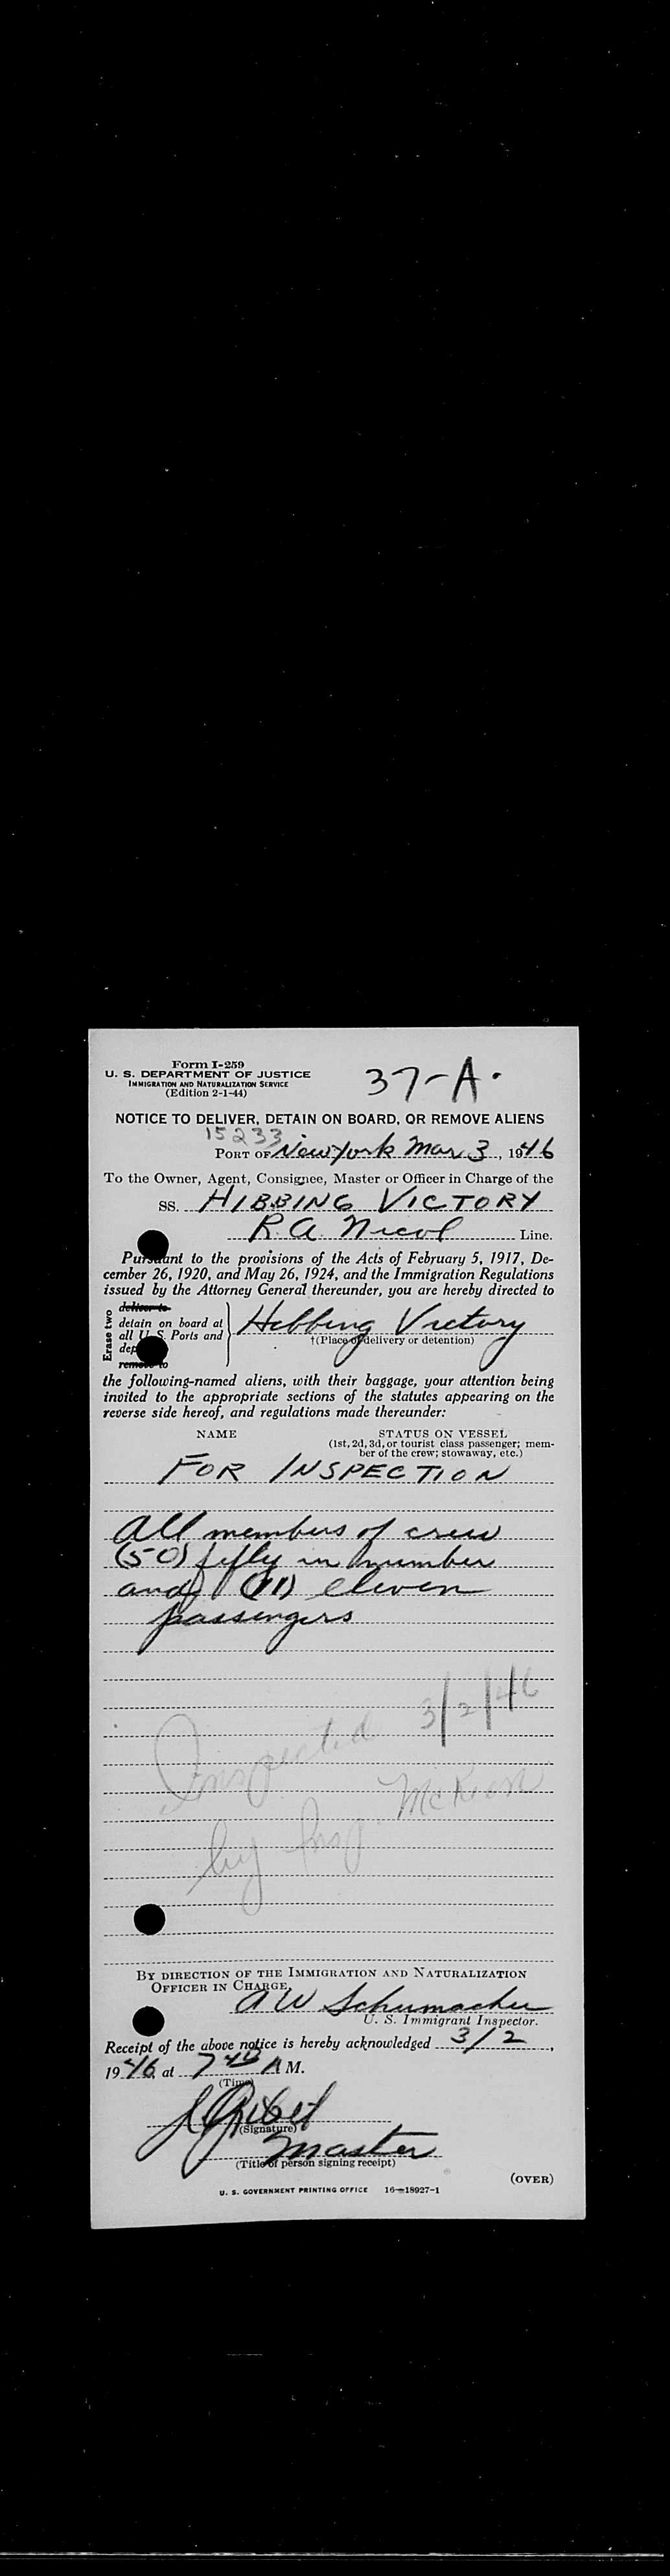 Form I-259
U. S. DEPARTMENT OF JUSTICE
IMMIGRATION AND NATURALIZATION SERVICE
(Edition 2-1-44)
37-A.
NOTICE TO DELIVER, DETAIN ON BOARD, OR REMOVE ALIENS
15233
PORT OF New York Mar 3, 1946
To the Owner, Agent, Consignee, Master or Officer in Charge of the
SS. HIBBING VICTORY
R.A. Nicol Line.
Pursuant to the provisions of the Acts of February 5, 1917, De-
cember 26, 1920, and May 26, 1924, and the Immigration Regulations
issued by the Attorney General thereunder, you are hereby directed to
Erase two
deliver to
detain on board at
all U. S. Ports and
remove to
Hibbing Victory
†(Place of delivery or detention)
the following-named aliens, with their baggage, your attention being
invited to the appropriate sections of the statutes appearing on the
reverse side hereof, and regulations made thereunder:
NAME STATUS ON VESSEL
(1st, 2d, 3d, or tourist class passenger; mem-
ber of the crew; stowaway, etc.)
FOR INSPECTION
All members of crew
(50) fifty in number
and (11) eleven
passengers
Inspected 3/2/46
by Insp. McKeon
BY DIRECTION OF THE IMMIGRATION AND NATURALIZATION
OFFICER IN CHARGE,
A W Schumacher
U. S. Immigrant Inspector.
Receipt of the above notice is hereby acknowledged 3/2,
1946 at 7 40 A M.
(Time)
(Signature)
Master
(Title of person signing receipt)
(OVER)
U. S. GOVERNMENT PRINTING OFFICE 16—18927-1